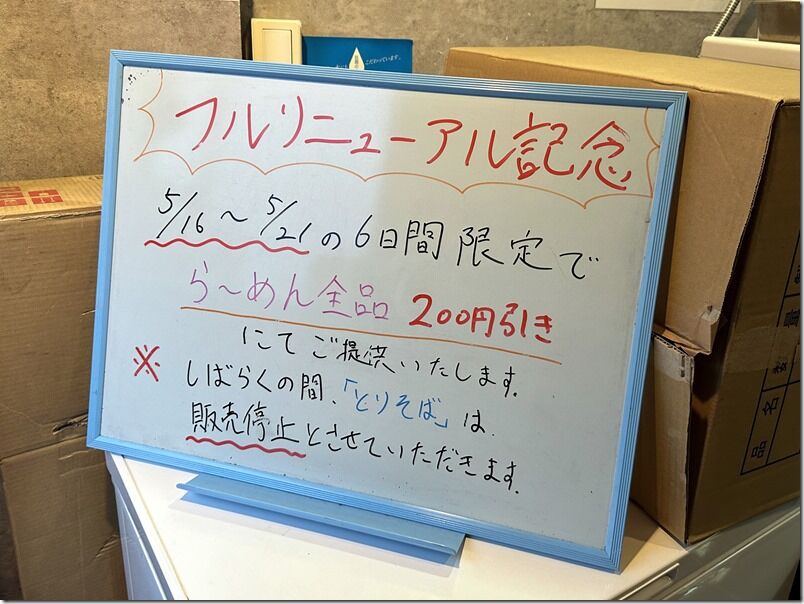 フルリニューアル記念
5/16〜5/21の6日間限定で
ら〜めん全品 200円引き
にてご提供いたします。
※ しばらくの間、「とりそば」は
販売停止とさせていただきます。
こだわっています。
品名
数量